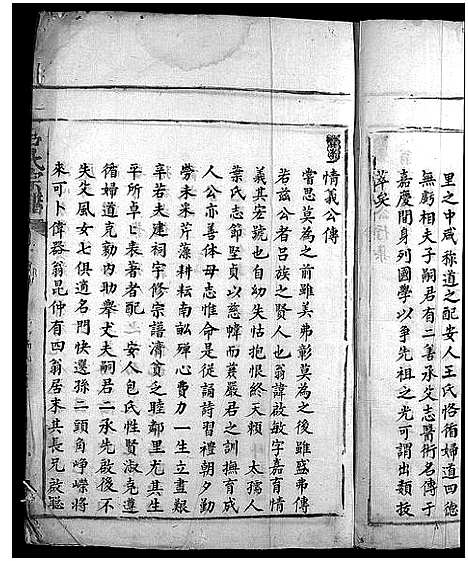 里之中咸称道之配安人王氏恪循婦道四德
無虧相夫子嗣君有二善承父志醫術名傳于
嘉慶間身列國學以爭先祖之光可謂出類拔
萃矣
情義公傳
嘗思莫為之前雖美弗彰莫為之後雖盛弗傳
若兹公者吕族之賢人也翁諱啟敏字嘉育情
義其宏號也自幼失怙抱恨終天賴 太孺人
葉氏志節堅貞以慈幃而兼嚴君之訓撫育成
人公亦善体母志惟命是從誦詩習禮朝夕勤
勞未采芹藻耕耘南畝殫心費力一生立畫艱
辛若夫建祠宇修宗譜濟貧乏睦鄰里尤其生
平所卓卓表著者配 安人包氏性賢淑克遵
循婦道克勤内助舉犬夫嗣君二承先啟後不
失父風女七俱適名門快遷孫二頭角崢嶸將
來可卜偉器翁昆仲有四翁居末其長兄啟聰